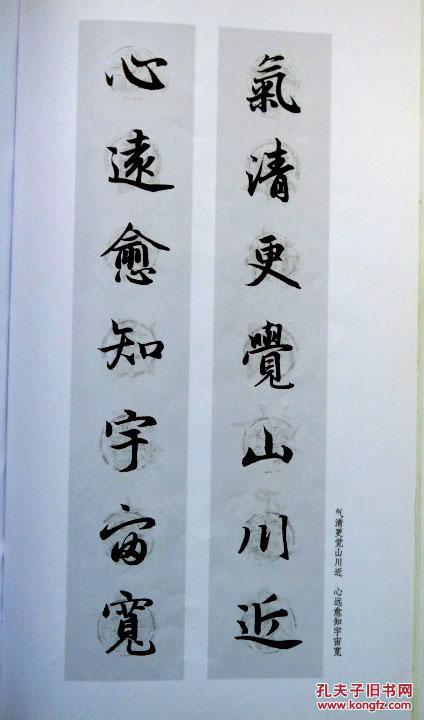 氣清更覺山川近
心遠愈知宇宙寬
气清更觉山川近 心远愈知宇宙宽
孔夫子旧书网
www.kongfz.com